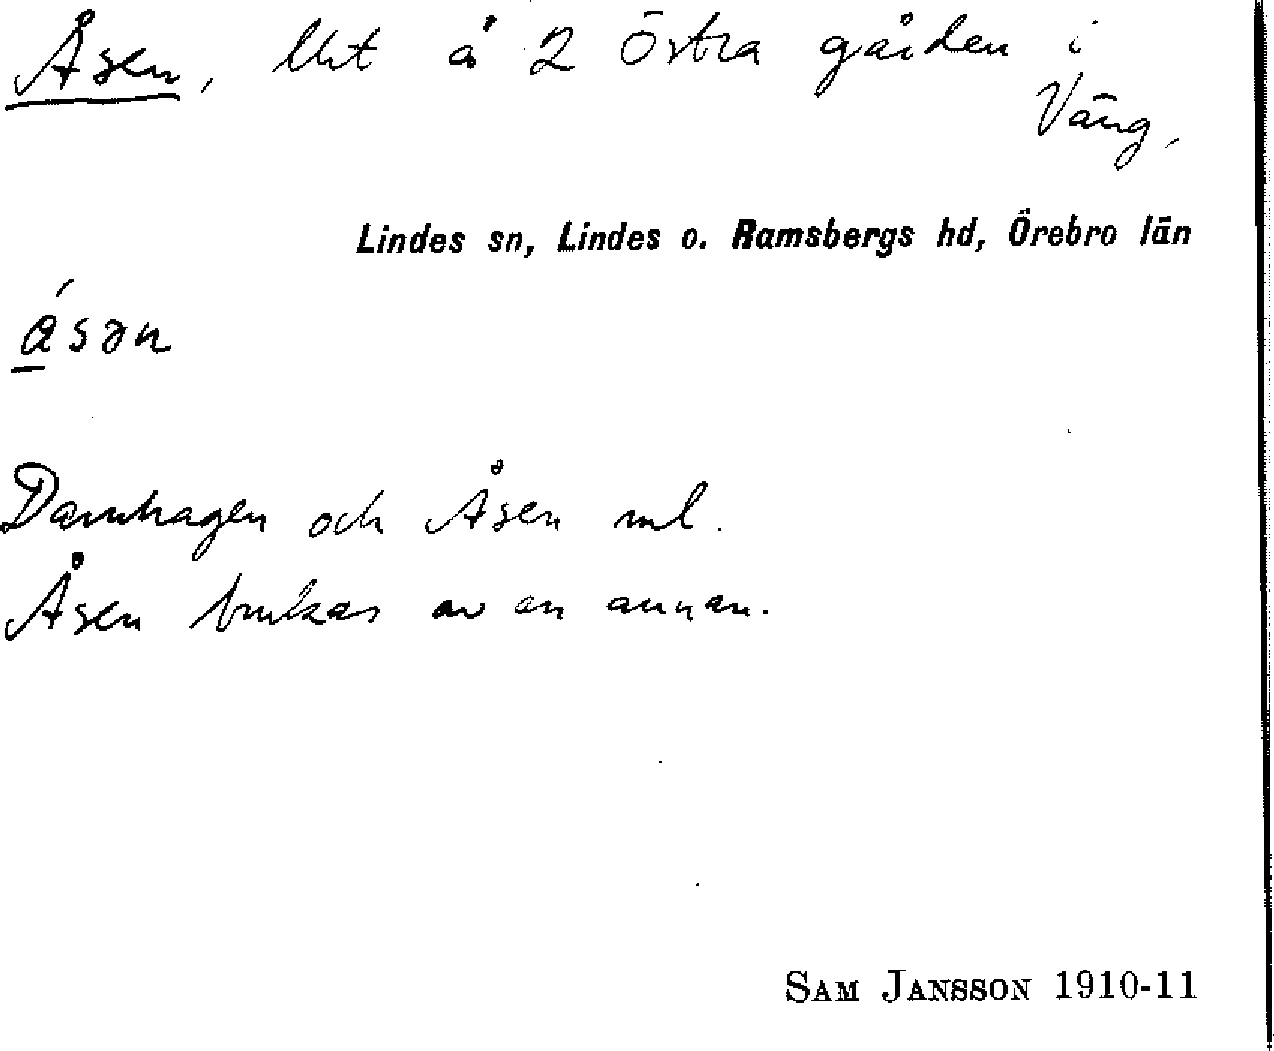 Åsen, lht å 2 Östra gården i
Väng,
Lindes sn, Lindes o. Ramsbergs hd, Örebro län
åsən
Damhagen och Åsen ml.
Åsen brukas av en annan.
SAM JANSSON 1910-11